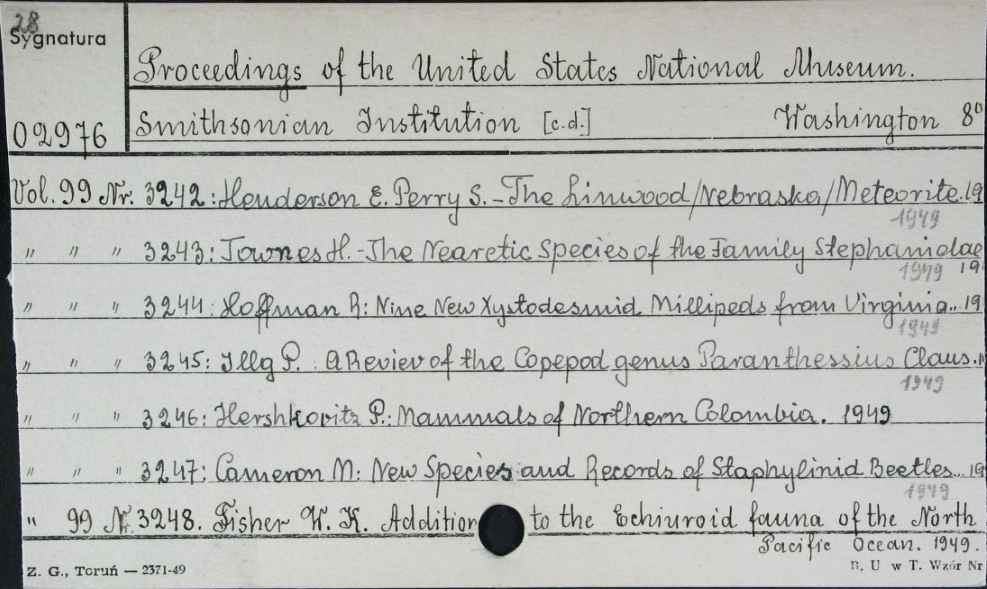 28
Sygnatura
02976
Proceedings of the United States National Museum.
Smithsonian Institution [c.d.] Washington 8°
Vol. 99 Nr. 3242: Henderson E. Perry S. - The Linwood /Nebraska/ Meteorite. 19
1949
" " " 3243: Townes H. - The Nearctic Species of the Family Stephanidae
1949 19
" " " 3244: Hoffman R: Nine New Xystodesmid Millipeds from Virginia.. 19
1949
" " " 3245: Illg P. : A Review of the Copepod genus Paranthessius Claus. 1
1949
" " " 3246: Hershkovitz P.: Mammals of Northern Colombia. 1949
" " " 3247: Cameron M: New Species and Records of Staphylinid Beetles... 19
1949
" 99 Nr. 3248. Fisher W. K. Addition to the Echiuroid fauna of the North
Pacific Ocean. 1949.
Z. G., Toruń — 2371-49
B. U w T. Wzór Nr